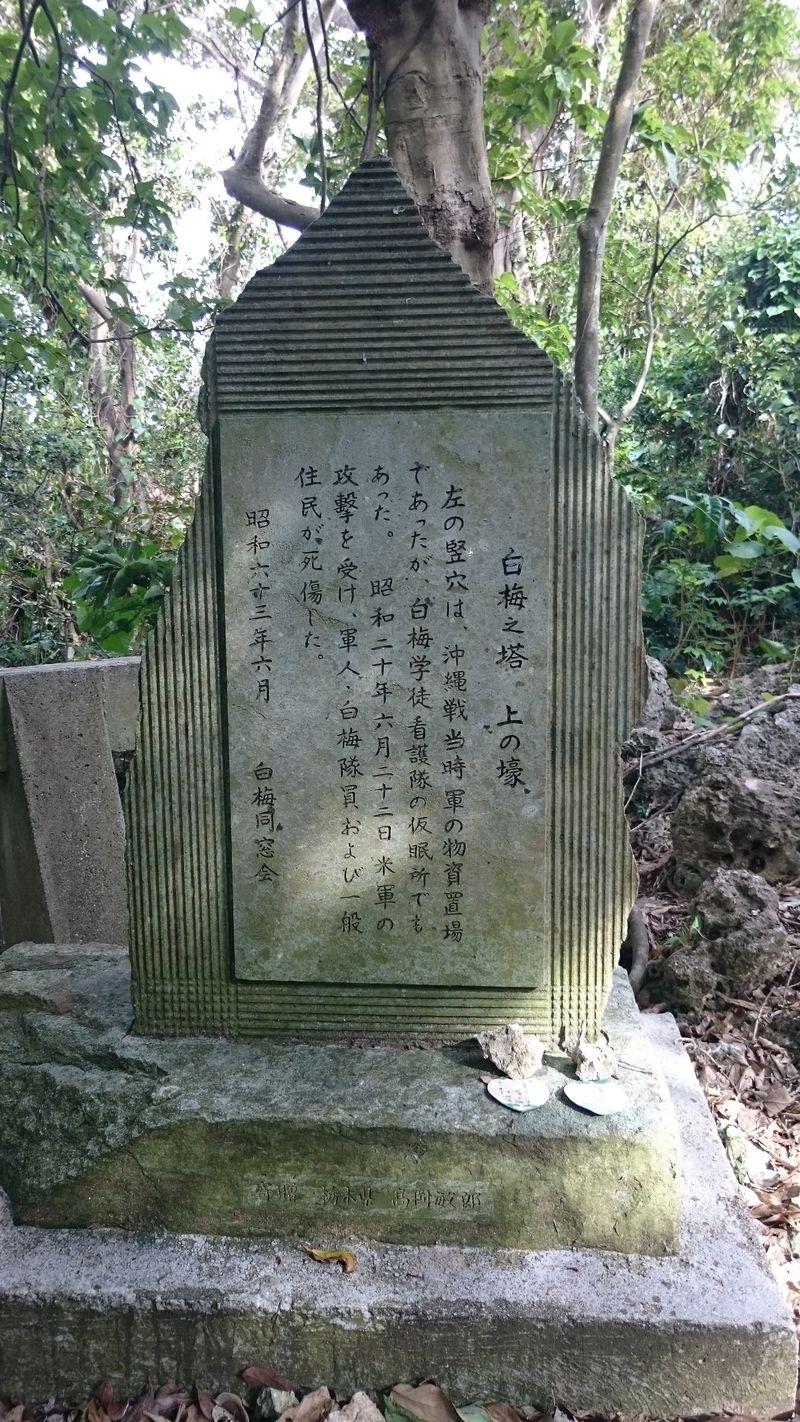 白梅之塔 上の壕
左の竪穴は、沖縄戦当時軍の物資置場
であったが、白梅学徒看護隊の仮眠所でも
あった。 昭和二十年六月二十二日米軍の
攻撃を受け、軍人、白梅隊員および一般
住民が死傷した。
昭和六十三年六月 白梅同窓会
寄贈 栃木県 高岡敏郎